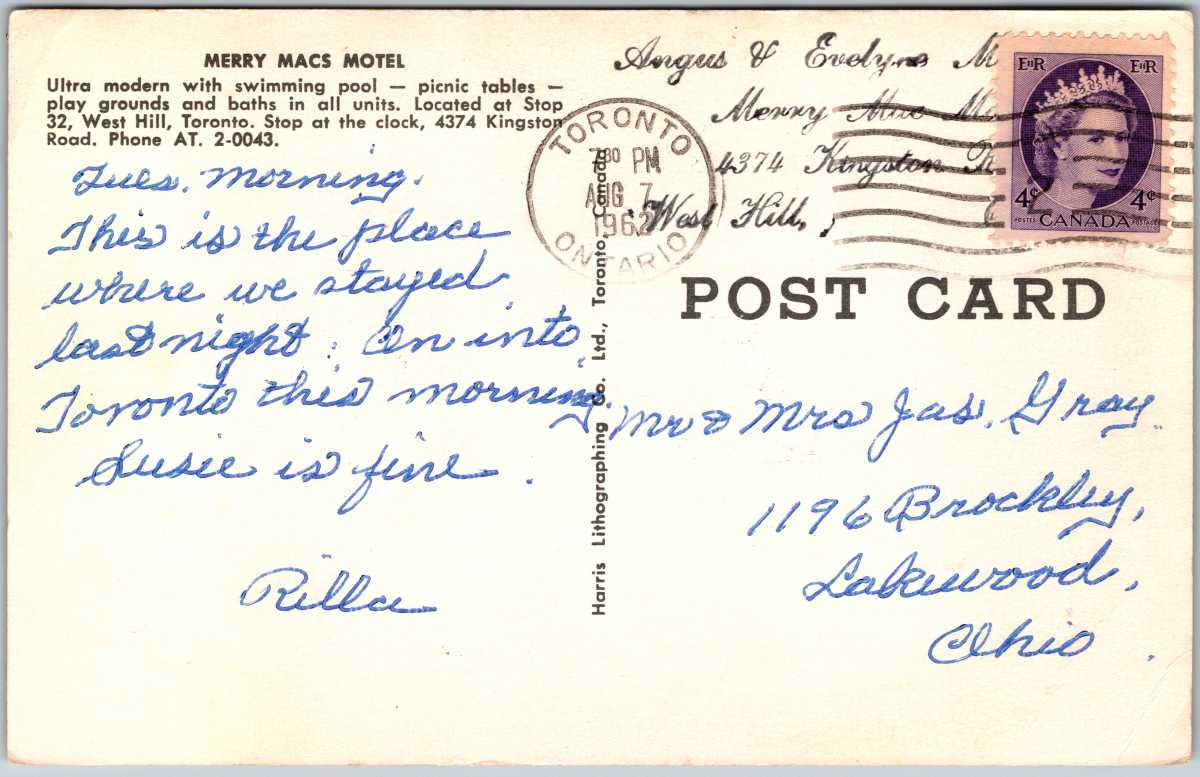 MERRY MACS MOTEL
Ultra modern with swimming pool — picnic tables —
play grounds and baths in all units. Located at Stop
32, West Hill, Toronto. Stop at the clock, 4374 Kingston
Road. Phone AT. 2-0043.
Tues. Morning.
This is the place
where we stayed
last night. On into
Toronto this morning.
Susie is fine.
Rilla
Harris Lithographing Co. Ltd., Toronto, Canada
Angus & Evelyn M
Merry Mac M
4374 Kingston
West Hill,
TORONTO
7 30 PM
AUG 7
1962
ONTARIO
EIIR EIIR
4¢ 4¢
POSTES CANADA POSTAGE
POST CARD
Mr & Mrs Jas. Gray
1196 Brockley,
Lakewood,
Ohio.